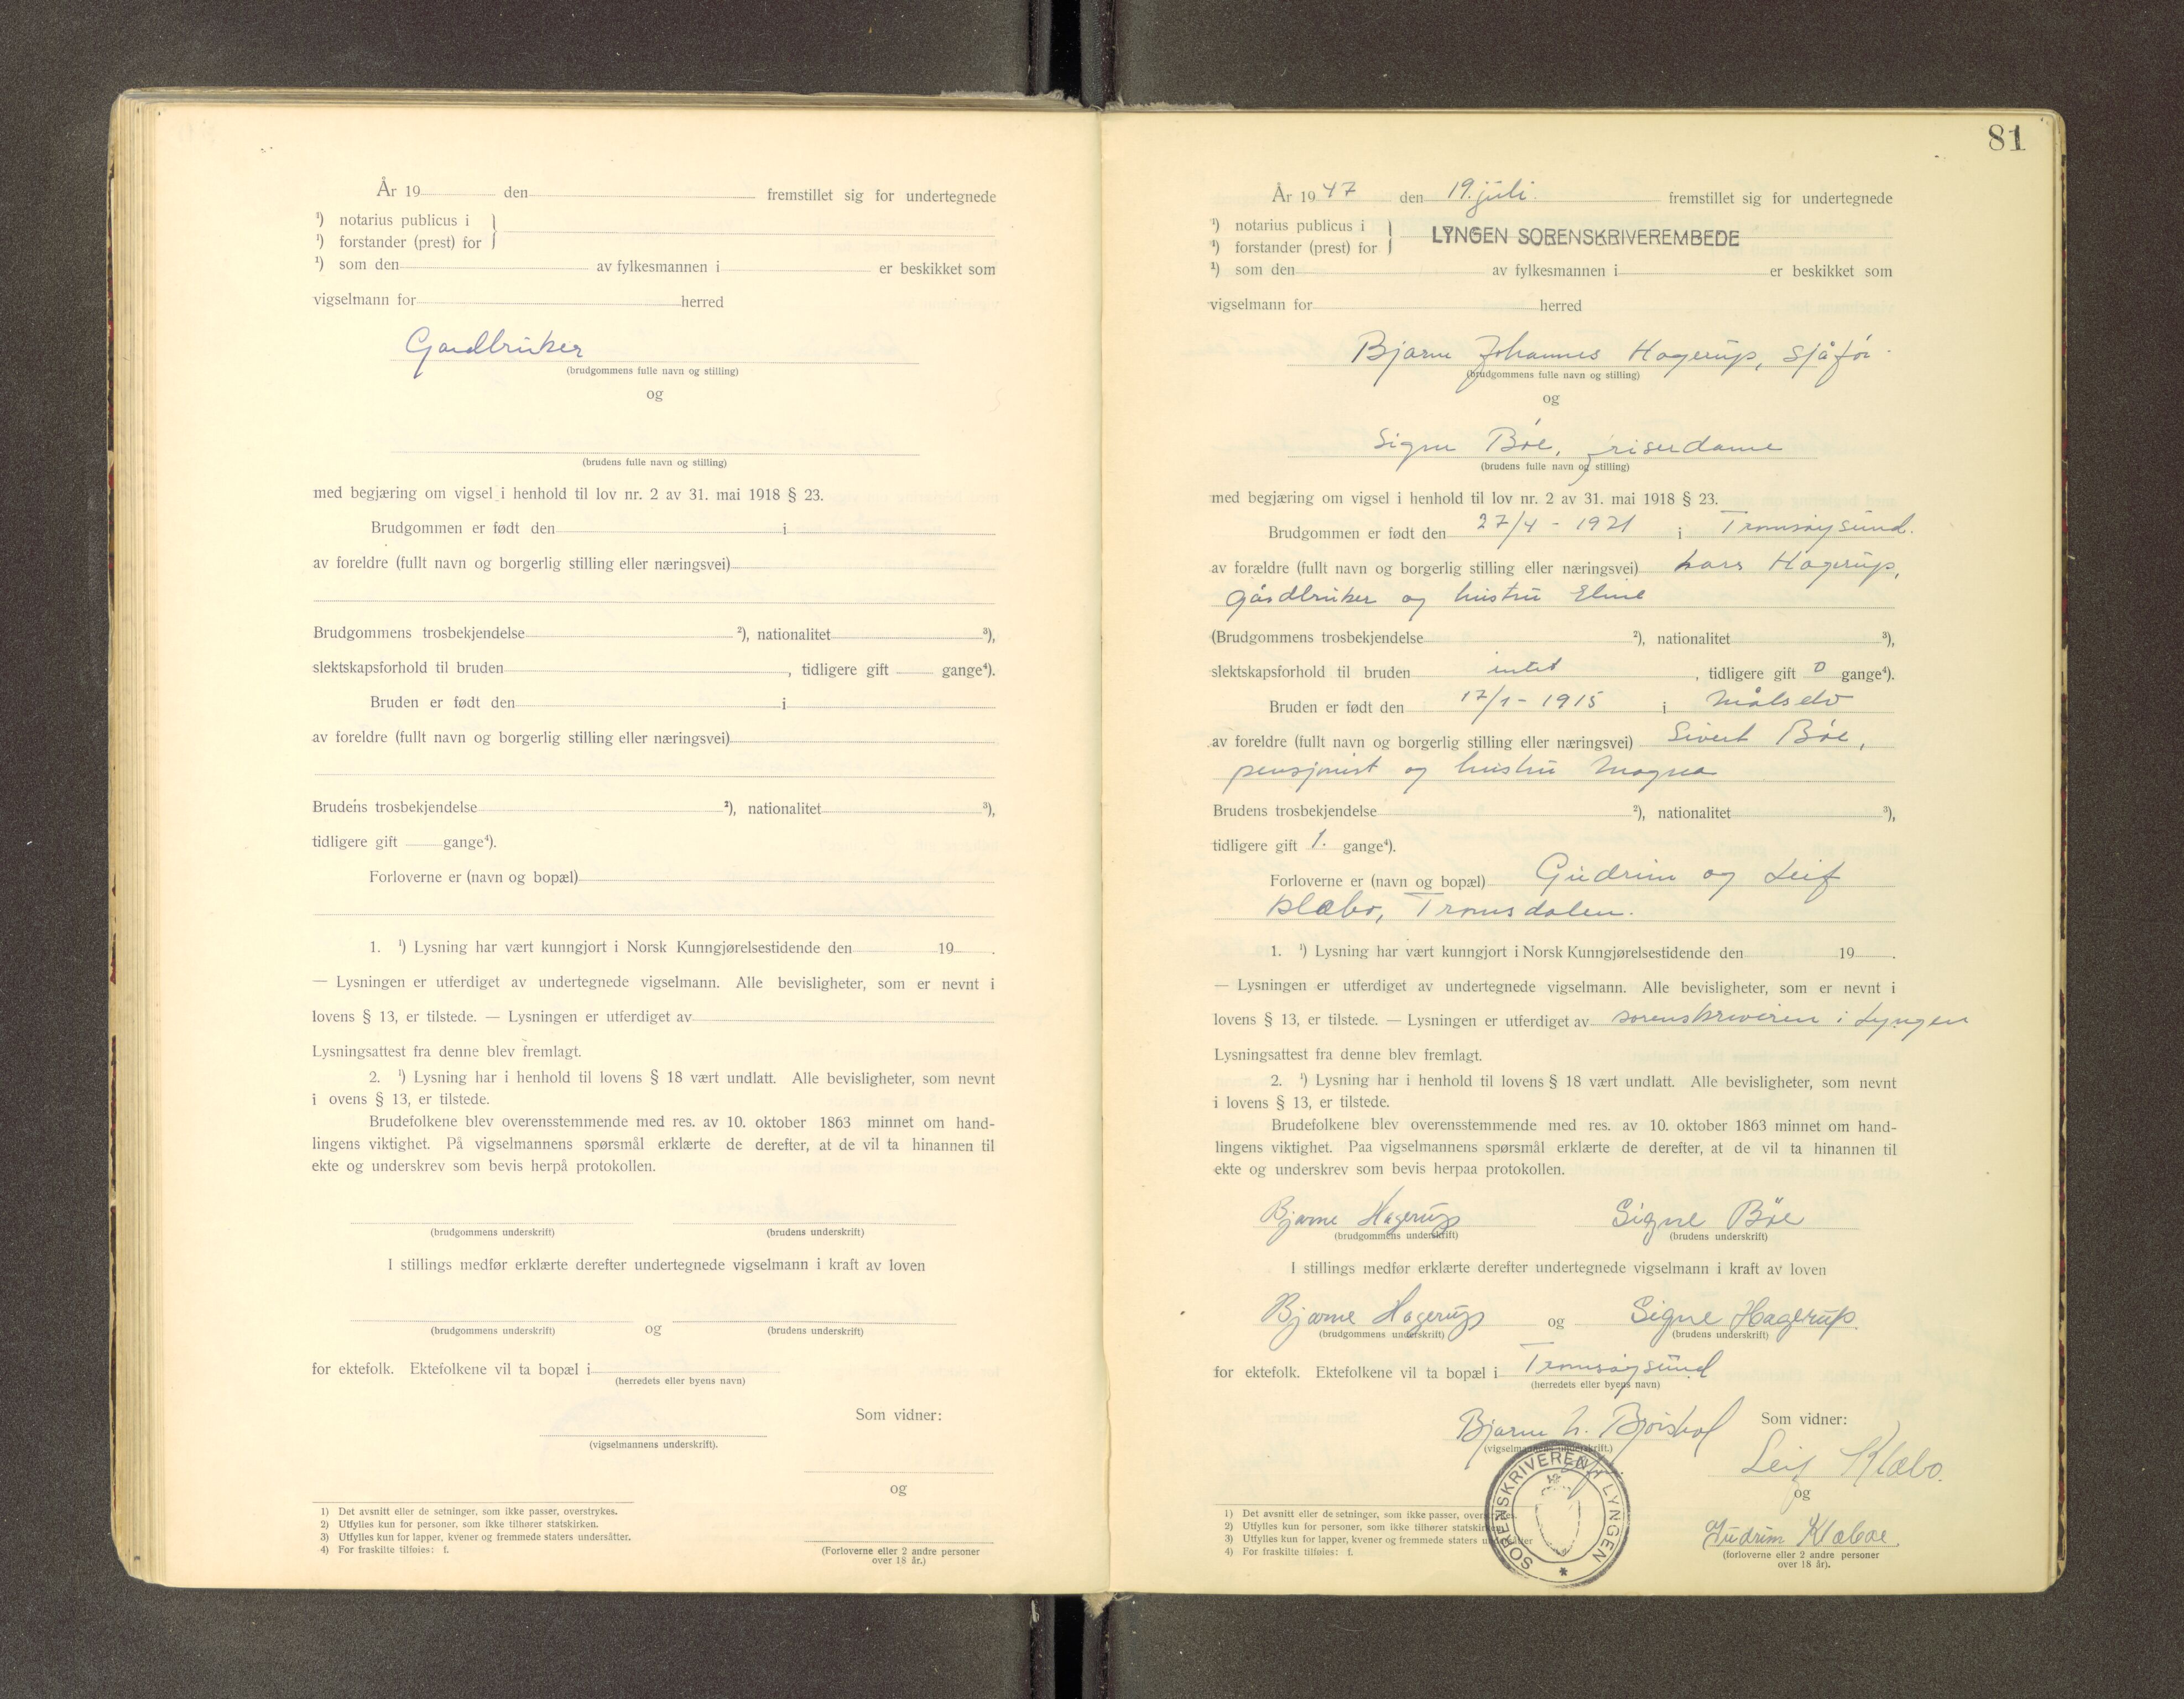 År 19 den fremstillet sig for undertegnede
¹) notarius publicus i }
¹) forstander (prest) for
¹) som den av fylkesmannen i er beskikket som
vigselmann for herred
Gardbruker
(brudgommens fulle navn og stilling)
og
(brudens fulle navn og stilling)
med begjæring om vigsel i henhold til lov nr. 2 av 31. mai 1918 § 23.
Brudgommen er født den i
av foreldre (fullt navn og borgerlig stilling eller næringsvei)
Brudgommens trosbekjendelse ²), nationalitet ³),
slektskapsforhold til bruden , tidligere gift gange⁴).
Bruden er født den i
av foreldre (fullt navn og borgerlig stilling eller næringsvei)
Brudens trosbekjendelse ²), nationalitet ³),
tidligere gift gange⁴).
Forloverne er (navn og bopæl)
1. ¹) Lysning har vært kunngjort i Norsk Kunngjørelsestidende den 19 .
— Lysningen er utferdiget av undertegnede vigselmann. Alle bevisligheter, som er nevnt i
lovens § 13, er tilstede. — Lysningen er utferdiget av
Lysningsattest fra denne blev fremlagt.
2. ¹) Lysning har i henhold til lovens § 18 vært undlatt. Alle bevisligheter, som nevnt
i ovens § 13, er tilstede.
Brudefolkene blev overensstemmende med res. av 10. oktober 1863 minnet om hand-
lingens viktighet. På vigselmannens spørsmål erklærte de derefter, at de vil ta hinannen til
ekte og underskrev som bevis herpå protokollen.
(brudgommens underskrift) (brudens underskrift)
I stillings medfør erklærte derefter undertegnede vigselmann i kraft av loven
og
(brudgommens underskrift) (brudens underskrift)
for ektefolk. Ektefolkene vil ta bopæl i
(herredets eller byens navn)
Som vidner:
(vigselmannens underskrift).
og
1) Det avsnitt eller de setninger, som ikke passer, overstrykes.
2) Utfylles kun for personer, som ikke tilhører statskirken.
3) Utfylles kun for lapper, kvener og fremmede staters undersåtter.
4) For fraskilte tilføies: f.
(Forloverne eller 2 andre personer
over 18 år.)
81
År 1947 den 19. juli. fremstillet sig for undertegnede
¹) notarius publicus i }
LYNGEN SORENSKRIVEREMBEDE
¹) forstander (prest) for
¹) som den av fylkesmannen i er beskikket som
vigselmann for herred
Bjarne Johannes Hagerup, sjåfør.
(brudgommens fulle navn og stilling)
og
Signe Bøe, friserdame
(brudens fulle navn og stilling)
med begjæring om vigsel i henhold til lov nr. 2 av 31. mai 1918 § 23.
Brudgommen er født den 27/4 - 1921 i Tromsøysund.
av forældre (fullt navn og borgerlig stilling eller næringsvei) Lars Hagerup,
gårdbruker og hustru Eline
(Brudgommens trosbekjendelse ²), nationalitet ³),
slektskapsforhold til bruden intet , tidligere gift 0 gange⁴).
Bruden er født den 17/1 - 1915 i Målselv
av foreldre (fullt navn og borgerlig stilling eller næringsvei) Sivert Bøe,
pensjonist og hustru Magna
Brudens trosbekjendelse ²), nationalitet ³),
tidligere gift 1. gange⁴).
Forloverne er (navn og bopæl) Gudrun og Leif
Klæbo, Tromsdalen.
1. ¹) Lysning har vært kunngjort i Norsk Kunngjørelsestidende den 19 .
— Lysningen er utferdiget av undertegnede vigselmann. Alle bevisligheter, som er nevnt i
lovens § 13, er tilstede. — Lysningen er utferdiget av sorenskriveren i Lyngen
Lysningsattest fra denne blev fremlagt.
2. ¹) Lysning har i henhold til lovens § 18 vært undlatt. Alle bevisligheter, som nevnt
i lovens § 13, er tilstede.
Brudefolkene blev overensstemmende med res. av 10. oktober 1863 minnet om hand-
lingens viktighet. Paa vigselmannens spørsmål erklærte de derefter, at de vil ta hinannen til
ekte og underskrev som bevis herpaa protokollen.
Bjarne Hagerup Signe Böe
(brudgommens underskrift) (brudens underskrift)
I stillings medfør erklærte derefter undertegnede vigselmann i kraft av loven
Bjarne Hagerup og Signe Hagerup.
(brudgommens underskrift) (brudens underskrift)
for ektefolk. Ektefolkene vil ta bopæl i Tromsøysund
(herredets eller byens navn)
Bjarne Som vidner:
(vigselmannens underskrift.)
Leif Klæbo.
og
SORENSKRIVEREN I LYNGEN *
1) Det avsnitt eller de setninger, som ikke passer, overstrykes.
2) Utfylles kun for personer, som ikke tilhører statskirken
3) Utfylles kun for lapper, kvener og fremmede staters undersåtter
4) For fraskilte tilføies: f.
Gudrun Klæboe.
(forloverne eller 2 andre personer
over 18 år).